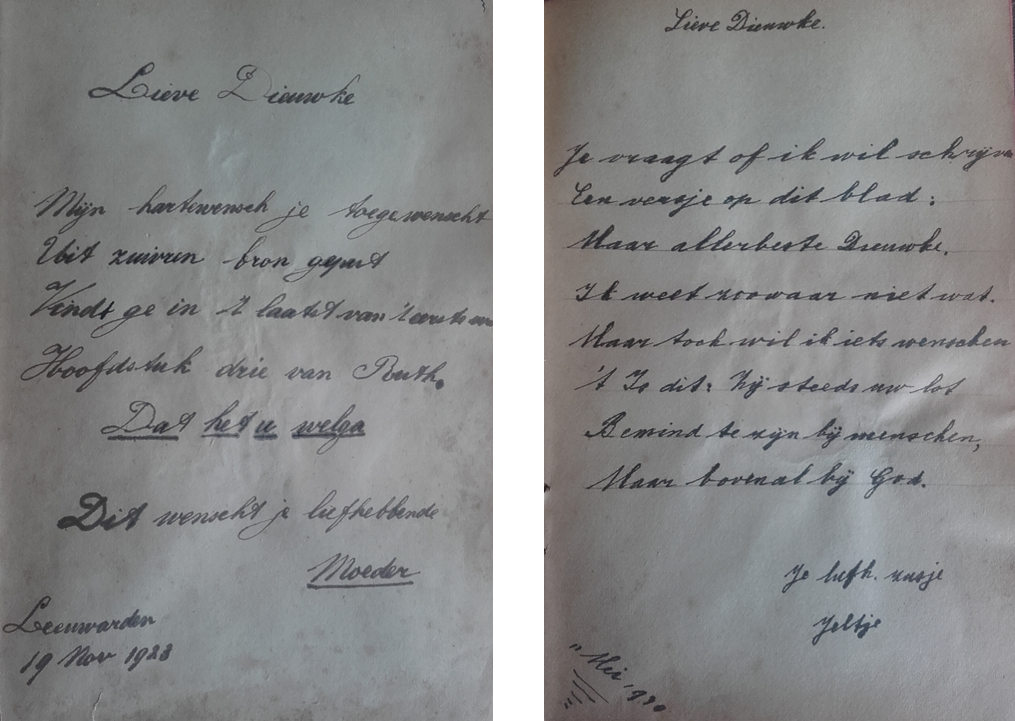 Lieve Dieuwke
Mijn hartewensch je toegewenscht
Uit zuivren bron geput
Vindt ge in 't laatst van 't eerste en
Hoofdstuk drie van Ruth.
Dat het u welga
Dit wenscht je liefhebbende
Moeder
Leeuwarden
19 Nov 1928
Lieve Dieuwke.
Je vraagt of ik wil schrijven
Een versje op dit blad:
Maar allerbeste Dieuwke.
Ik weet zoowaar niet wat.
Maar toch wil ik iets wenschen
't Is dit: Zij steeds uw lot
Bemind te zijn bij menschen,
Maar bovenal bij God.
Je liefh. zusje
Jeltje
Mei